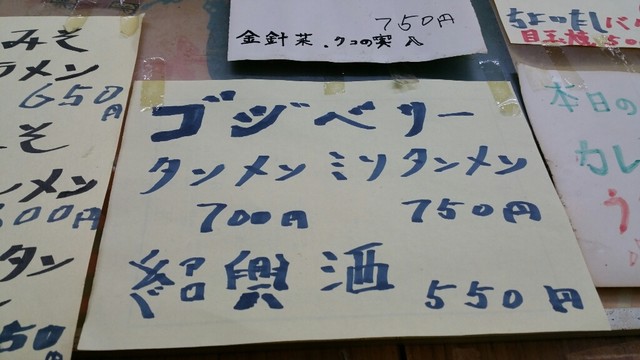 みそ
ラメン
650円
みそ
メン
500円
タン
50
750円
金針菜.クコの
ゴジベリー
タンメン ミソタンメン
700円 750円
紹興酒 550円
ちょいたし
目玉
本日の
カレ
う